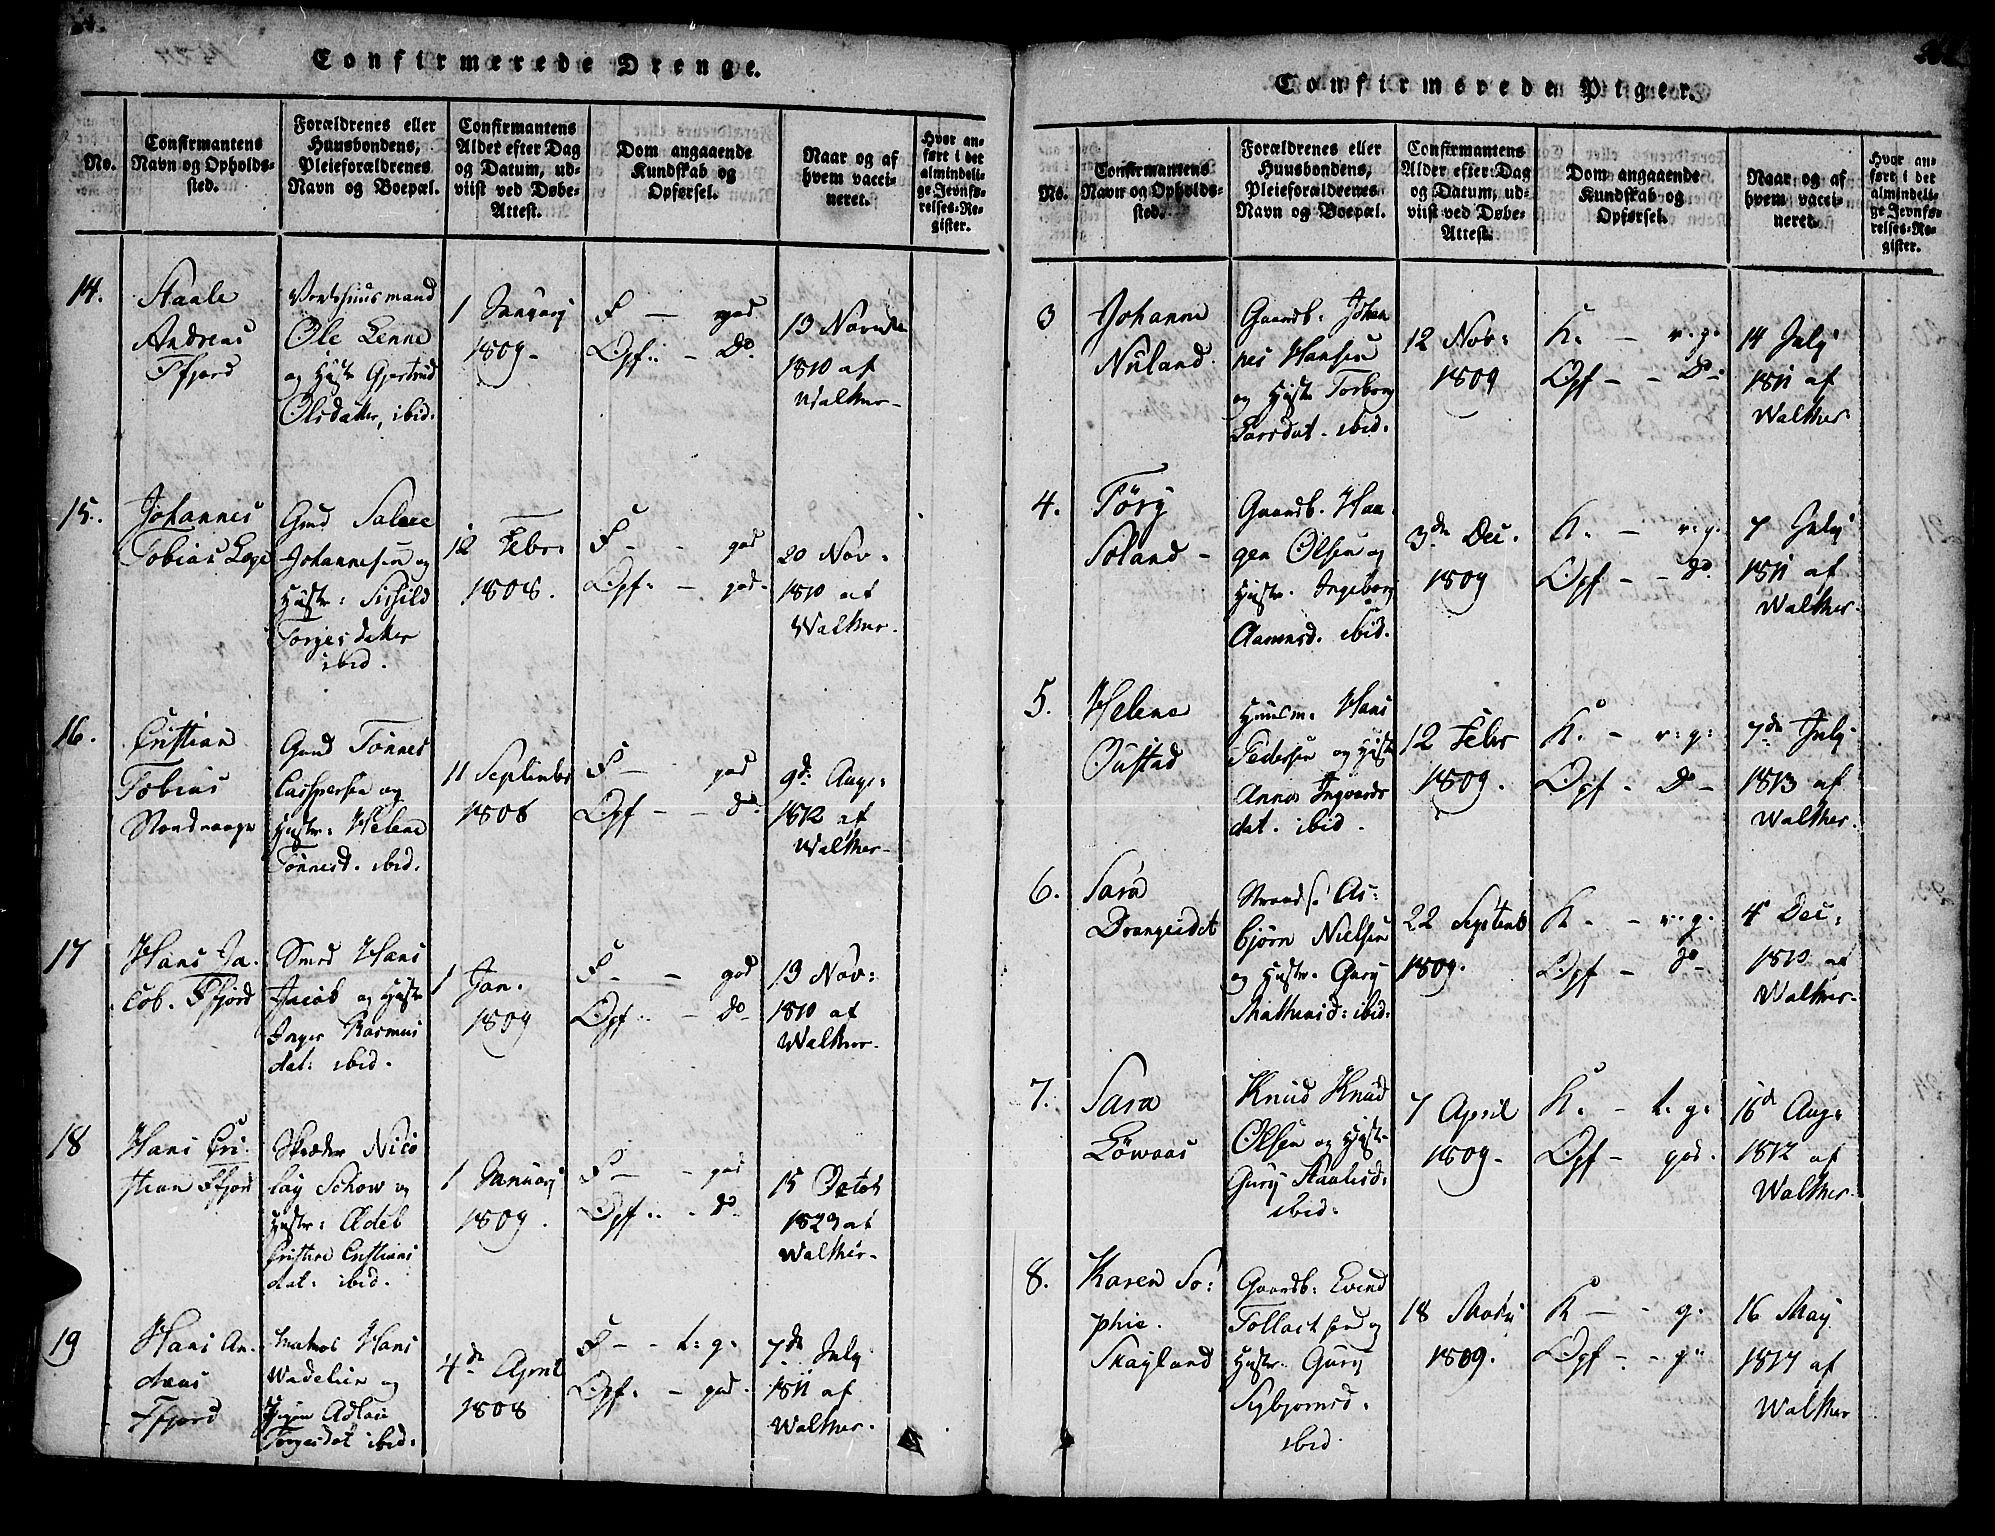 Confirmerede Drenge.
No.
Confirmantens
Navn og Opholds-
sted.
Forældrenes eller
Huusbondens,
Pleieforældrenes
Navn og Boepæl.
Confirmantens
Alder efter Dag
og Datum, ud-
viist ved Døbe-
Attest.
Dom angaaende
Kundskab og
Opførsel.
Naar og af
hvem vacci-
neret.
Hvor an-
ført i det
almindeli-
ge Jevnfø-
relses-Re-
gister.
14.
Staale
Andreas
Ffjord
Ole Lenne
og Hustr Gjertrud
Olsdatter, ibid:
1 Januarj
1809-
F — god
Opf: - Do.
13 Novembr
1810 af
Walther-
15.
Johannes
Tobias Lege
Gmd Salve
Johannesen og
Hustr: Sithild
Torgesdatter
ibid.
12 Febr:
1808.
F - - god
Opf: - god.
20 Nov:
1810 af
Walther.
16.
Cristian
Tobias
Gmd Tönnes
Caspersen og
Hustr: Helene
Tönnesd. ibid.
11 September
1808
F — god
Opf - - do.
9d: Aug:
1812 af
Walther-
17
Hans Ja-
cob. Ffjord
Smed Hans
Jacob og Hustr
Inger Rasmus
dat: ibid.
1 Jan.
1809
F - - god
Opf: - do-
13 Nov:
1810 af
Walther-
18
Hans Cri-
stian Ffjord
Skræder Nico
lay Schow og
Hustr: Adel
Cristine Cristians
dat: ibid.
1 Januarj
1809.
F - - god
Opf: - do
15 Octob
1823 af
Walther-
19
Hans An-
dreas
Ffjord
Matros Hans
Wadelien og
Torgesdat ibid:
4de April
1808
F - - t: g:
Opf: - god.
7de July
1811 af
Walther-
Confirmerede Piger.
No.
Confirmantens
Navn og Opholds-
sted.
Forældrenes eller
Huusbondens,
Pleieforældrenes
Navn og Boepæl.
Confirmantens
Alder efter Dag
og Datum, ud-
viist ved Døbe-
Attest.
Dom angaaende
Kundskab og
Opførsel.
Naar og af
hvem vacci-
neret.
Hvor an-
ført i det
almindeli-
ge Jevnfø-
relses-Re-
gister.
3
Johanne
Nuland
Gaardb: Johan
nes Hansen
og Hustr Torborg
Larsdat. ibid:
12 Nov:
1809
K. — v: g:
Opf - - Do-
14 July
1811 af
Walther
4.
Törg
Soland -
Gaardb. Haa
gen Olsen og
Hustr. Ingeborg
Aamensd. ibid.
3de Dec.
1809
K. - v: g:
Opf - - do
7 July
1811 af
Walther
5.
Helene
Oustad
Huusm: Hans
Pedersen og Hustr
Anna Ingvards
dat. ibid.
12 Febr
1809.
K. - v: g:
Opf - Do -
7de July
1813 af
Walther.
6.
Sara
Drangeidet
Strands: As:
björn Nielsen
og Hustr. Gury
Mathiasd: ibid:
22 Septemb
1809.
K. - v: g.
Opf - do-
4 Dec:
1810 af
Walther-
7.
Sara
Löwaas
Knud Knud
Olsen og Hustr-
Gury Staalesd:
ibid:
7 April
1809-
K. - t. g:
Opf - god.
16d Aug:
1812 af
Walther-
8.
Karen So:
phie.
Skayland
Gaardb: Evind
Tollach sen og
Hustr. Gury
Sigbjornsd.
ibid.
18 Martij
1809.
K — - g:
Opf - - g:
16 May
1817 af
Walther